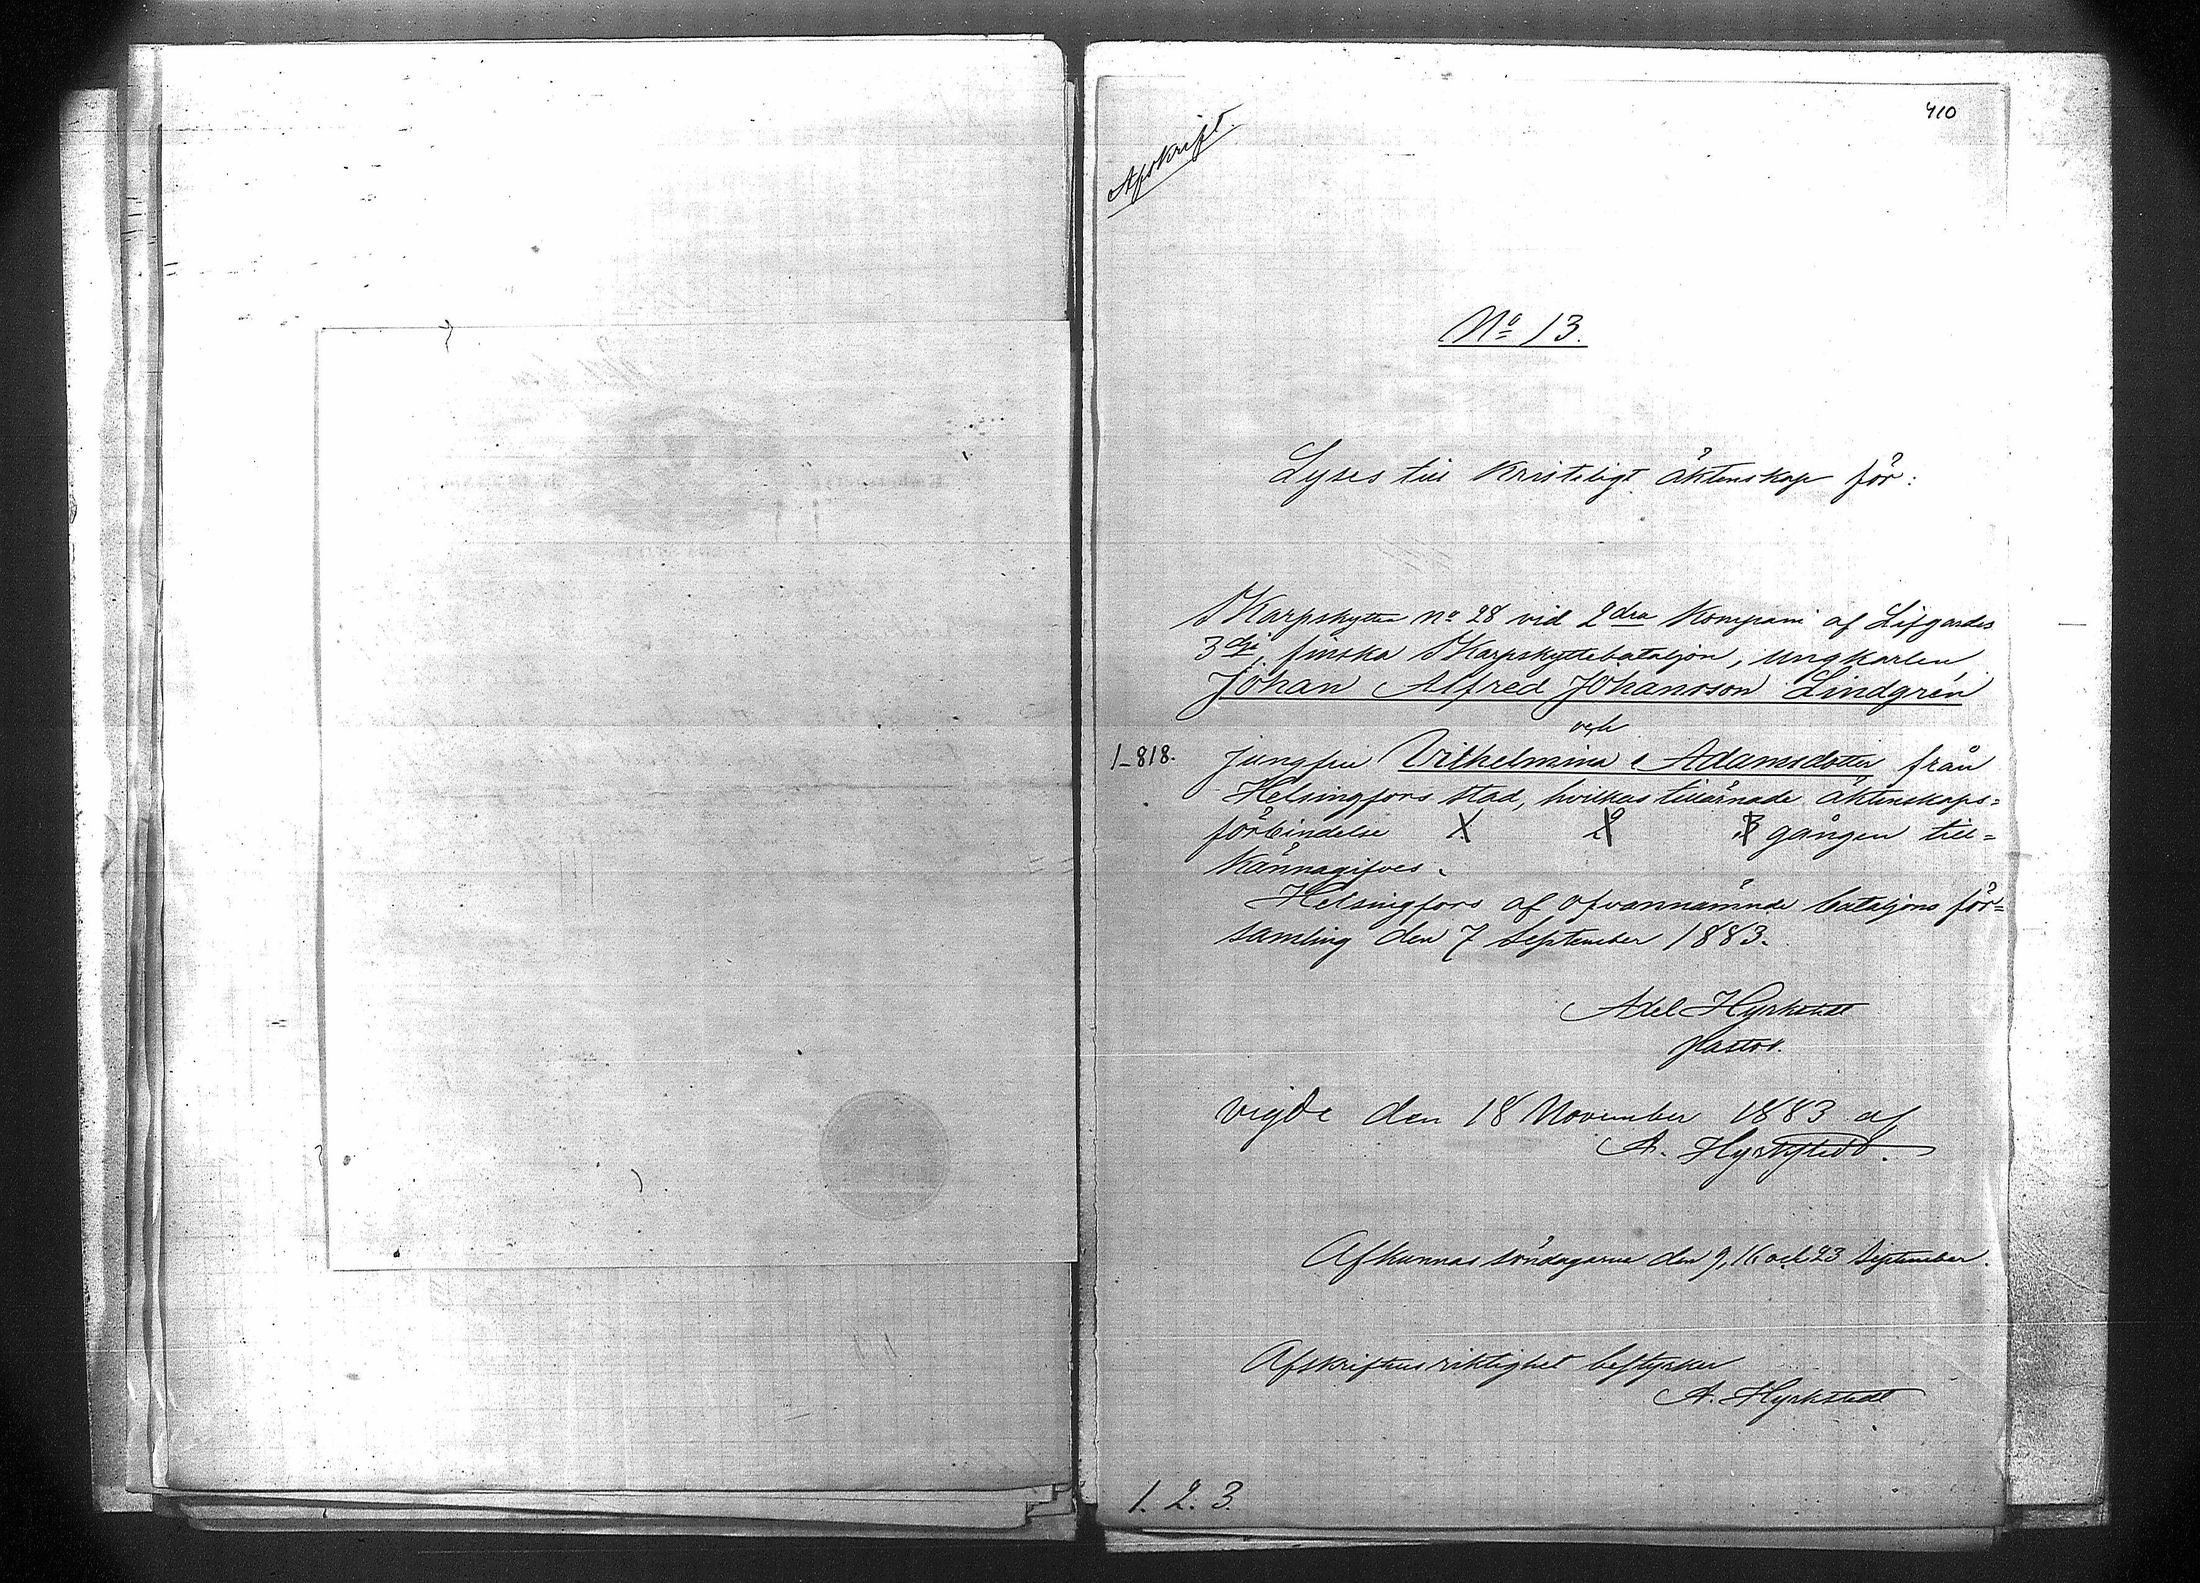 410
Afskrift.
No 13.
Lyses till kristeligt äktenskap för:
Skarpskytten No 28 vid 2dra Kompani af Lifgardes
3dje finska Skarpskyttebataljon, ungkarlen
Johan Alfred Johansson Lindgrén
och
1-818. jungfru Vilhelmina Adamsdotter från
Helsingfors stad, hvilkas tillärnade äktenskaps=
förbindelse 1 2 3 gången till=
kännagifves.
Helsingfors af ofvannämnde bataljons för=
samling den 7 September 1883.
Axel Hyrkstedt
Pastor.
Vigde den 18 November 1883 af
A. Hyrkstedt.
Afkunnas söndagarne den 9, 16 och 23 September.
Afskriftens riktighet bestyrker
A. Hyrkstedt
1. 2. 3.